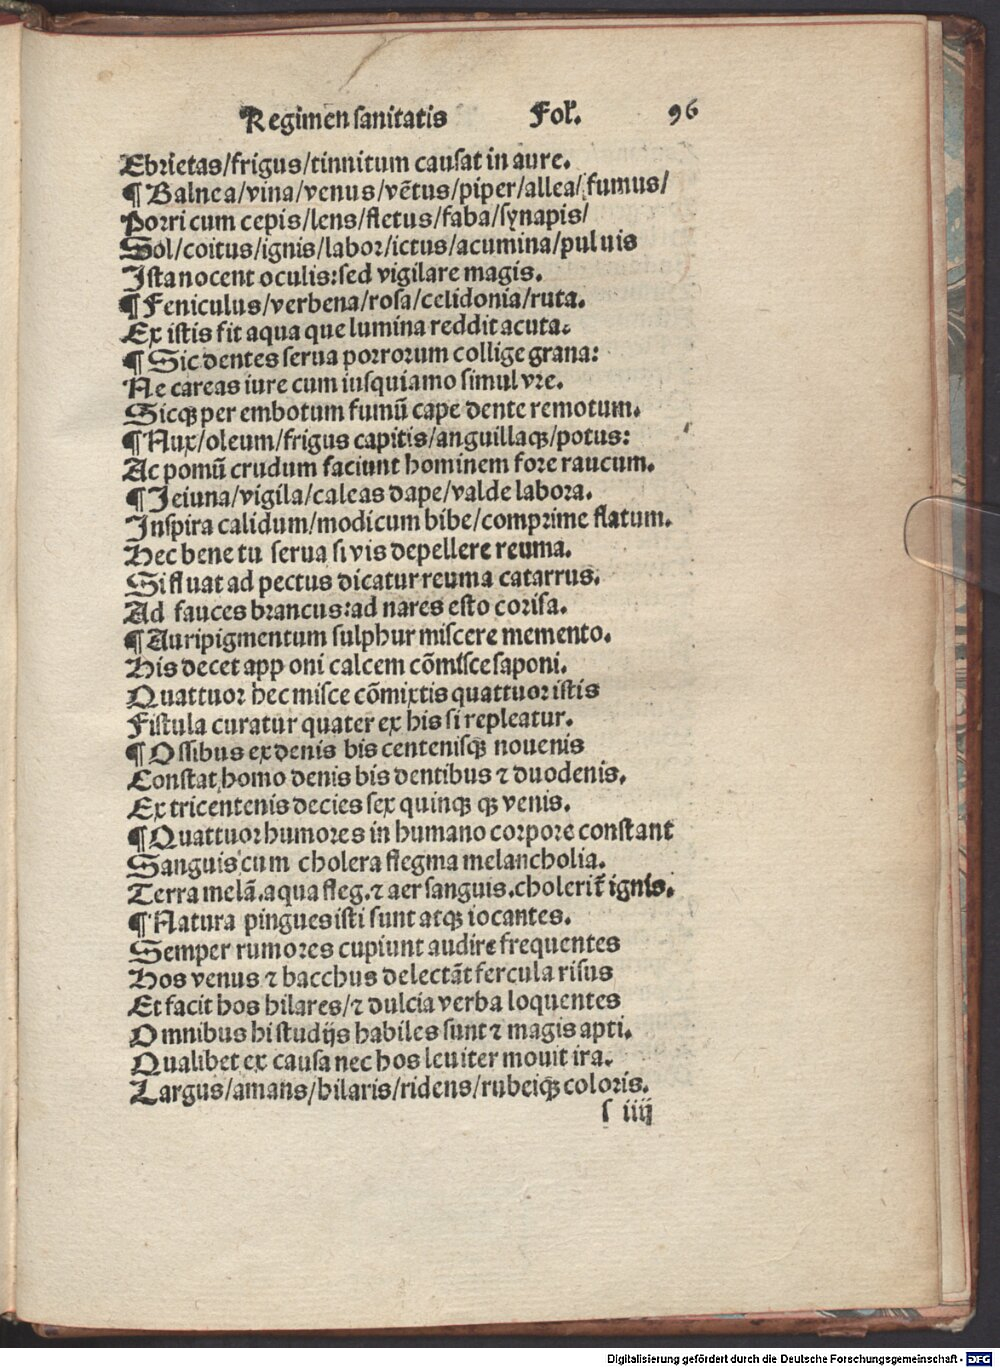 Regimen sanitatis Fol. 96
Ebrietas/frigus/tinnitum causat in aure.
¶ Balnea/vina/venus/vētus/piper/allea/fumus/
Porri cum cepis/lens/fletus/faba/synapis/
Sol/coitus/ignis/labor/ictus/acumina/puluis
Ista nocent oculis: sed vigilare magis.
¶ Feniculus/verbena/rosa/celidonia/ruta.
Ex istis fit aqua que lumina reddit acuta.
¶ Sic dentes serua porrorum collige grana:
Ne careas iure cum iusquiamo simul vre.
Sicqꝫ per embotum fumū cape dente remotum.
¶ Nux/oleum/frigus capitis/anguillaqꝫ/potus:
Ac pomū crudum faciunt hominem fore raucum.
¶ Jeiuna/vigila/caleas dape/valde labora.
Inspira calidum/modicum bibe/comprime flatum.
Hec bene tu serua si vis depellere reuma.
Si fluat ad pectus dicatur reuma catarrus.
Ad fauces brancus: ad nares esto corisa.
¶ Auripigmentum sulphur miscere memento.
His decet apponi calcem cōmisce saponi.
Quattuor hec misce cōmixtis quattuor istis
Fistula curatur quater ex his si repleatur.
¶ Ossibus ex denis bis centenisqꝫ nouenis
Constat homo denis bis dentibus ⁊ duodenis.
Ex tricentenis decies sex quinqꝫ qꝫ venis.
¶ Quattuor humores in humano corpore constant
Sanguis cum cholera flegma melancholia.
Terra melā. aqua fleg. ⁊ aer sanguis. cholerit̄ ignis.
¶ Natura pingues isti sunt atqꝫ iocantes.
Semper rumores cupiunt audire frequentes
Hos venus ⁊ bacchus delectāt fercula risus
Et facit hos hilares/⁊ dulcia verba loquentes
Omnibus hi studijs habiles sunt ⁊ magis apti.
Qualibet ex causa nec hos leuiter mouit ira.
Largus/amans/hilaris/ridens/rubeiqꝫ coloris.
s iiij
Digitalisierung gefördert durch die Deutsche Forschungsgemeinschaft - DFG